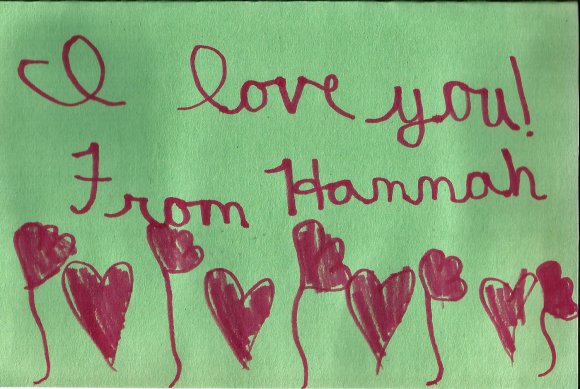 I love you!
From Hannah